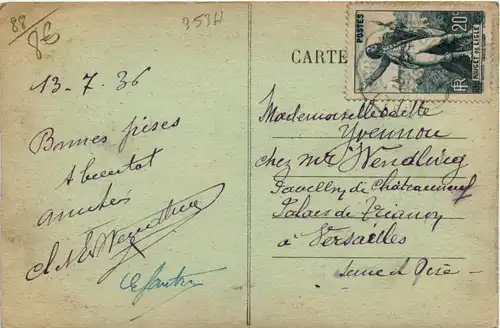 88
8€
953H
CARTE
POSTES
20c
RF
ROUGET DE LISLE
13-7-36
Bonnes
A bientot
amitiés
Mademoiselle Odette
Yvennou
chez Mr Wendling
Pavillon de Chateauneuf
Palais de Trianon
à Versailles
Seine et Oise